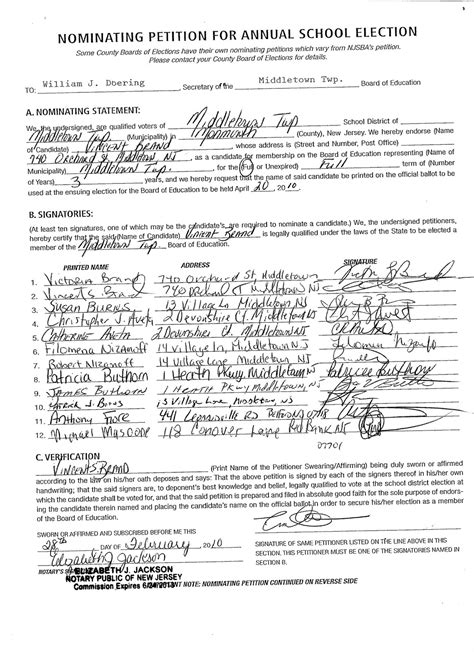 NOMINATING PETITION FOR ANNUAL SCHOOL ELECTION
Some County Boards of Elections have their own nominating petitions which vary from NJSBA's petition.
Please contact your County Board of Elections for details.
TO: William J. Doering Secretary of the Middletown Twp. Board of Education
A. NOMINATING STATEMENT:
We, the undersigned, are qualified voters of Middletown Twp School District of
Middletown Twp (Municipality) in Monmouth (County), New Jersey. We hereby endorse (Name
of Candidate) Vincent Brand, whose address is (Street and Number, Post Office)
740 Orchard St, Middletown NJ, as a candidate for membership on the Board of Education representing (Name of
Municipality) Middletown Twp. for the (Full or Unexpired) Full term of (Number
of Years) 3 years, and we hereby request that the name of said candidate be printed on the official ballot to be
used at the ensuing election for the Board of Education to be held April 20 2010
B. SIGNATORIES:
(At least ten signatures, one of which may be the candidate's, are required to nominate a candidate.) We, the undersigned petitioners,
hereby certify that the said (Name of Candidate) Vincent Brand is legally qualified under the laws of the State to be elected a
member of the Middletown Twp. Board of Education.
PRINTED NAME ADDRESS SIGNATURE
1. Victoria Brand 740 Orchard St, Middletown
2. Vincent S Brand 740 Orchard St Middletown NJ
3. Susan Burns 13 Village Ln Middletown
4. Christopher J. Aveta 2 Devonshire Ct. Middletown
5. Catherine Aveta 2 Devonshire Ct Middletown
6. Filomena Nizanoff 14 Village Ln, Middletown NJ
7. Robert Nizanoff 14 Village Lane Middletown NJ
8. Patricia Buthorn 1 Heath Pkwy, Middletown
9. James Buthorn 1 Heath Pkwy Middletown, NJ
10. Patrick J. Burns 13 Village Lane, Middletown, NJ
11. Anthony Fiore 441 RD
12. Michael Mascone 118 Conover Lane Red Bank NJ
07701
C. VERIFICATION
Vincent S Brand (Print Name of the Petitioner Swearing/Affirming) being duly sworn or affirmed
according to the law on his/her oath deposes and says: That the above petition is signed by each of the signers thereof in his/her own
handwriting; that the said signers are, to deponent's best knowledge and belief, legally qualified to vote at the school district election at
which the candidate shall be voted for, and that the said petition is prepared and filed in absolute good faith for the sole purpose of endors-
ing the candidate therein named and placing the candidate's name on the official ballot in order to secure his/her election as a member
of the Board of Education.
SWORN OR AFFIRMED AND SUBSCRIBED BEFORE ME THIS
28th DAY OF February 2010
Elizabeth J Jackson
SIGNATURE OF SAME PETITIONER LISTED ON THE LINE ABOVE IN THIS
SECTION, THIS PETITIONER MUST BE ONE OF THE SIGNATORIES NAMED IN
SECTION B.
NOTARY'S ELIZABETH J. JACKSON
NOTARY PUBLIC OF NEW JERSEY
Commission Expires 6/24/2013 NOTE: NOMINATING PETITION CONTINUED ON REVERSE SIDE